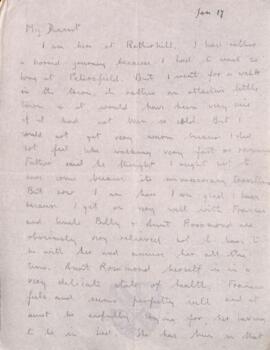 Jan 17
My Dearest
I am here at Rotherhill. I had rather
a horrid journey because I had to wait so
long at Petersfield. But I went for a walk
in the town, it rather an attractive little
town & it would have been very nice
if it had not been so cold. But I
could not get very warm because I did
not feel like walking very fast or running
Father said he thought I ought not to
have come because its unnecessary travelling
But now I am here I am glad I have
because I get on very well with Frances
and Uncle Billy & Aunt Rosamond are
obviously very relieved not to have to
be with her and amuse her all the
time. Aunt Rosamond herself is in a
very delicate state of health. Frances
feels and seems perfectly well and it
must be awfully trying for her having
to be in bed. She has been in that